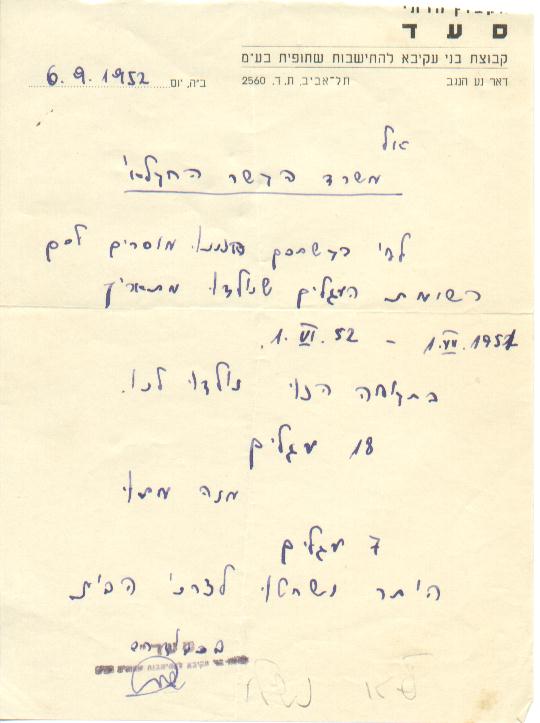 סעד
קבוצת בני עקיבא להתישבות שתופית בע״מ
דאר נע הנגב תל־אביב, ת.ד. 2560 ב״ה, יום 6.9.1952
אל
משרד הקשר החקלאי
לפי בקשתכם הננו מוסרים לכם
רשימת העגלים שנולדו מתאריך
1.VII.1951 – 1.VI.52.
בתקופה הנ״ל נולדו לנו.
18 עגלים
מזה מתו
7 עגלים
היתר נשחטו לצרכי הבית